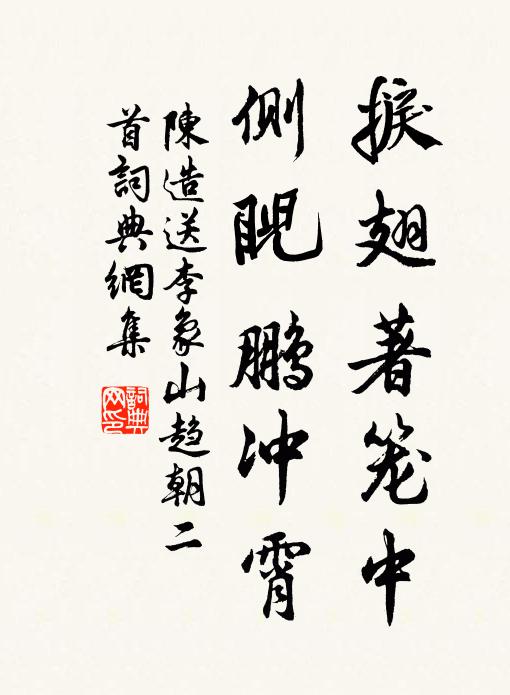 捩翅著笼中
侧睨鹏冲霄
陳造送李象山趋朝二
首詞典網集
詞典
网印